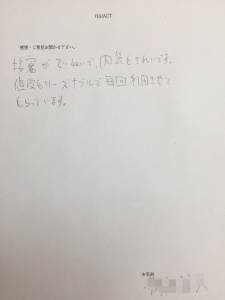 HAIACT
感想・ご意見お聞かせ下さい。
接客がていねいで、内装もきれいです。
値段もリーズナブルで毎回利用させて
もらっています。
お名前